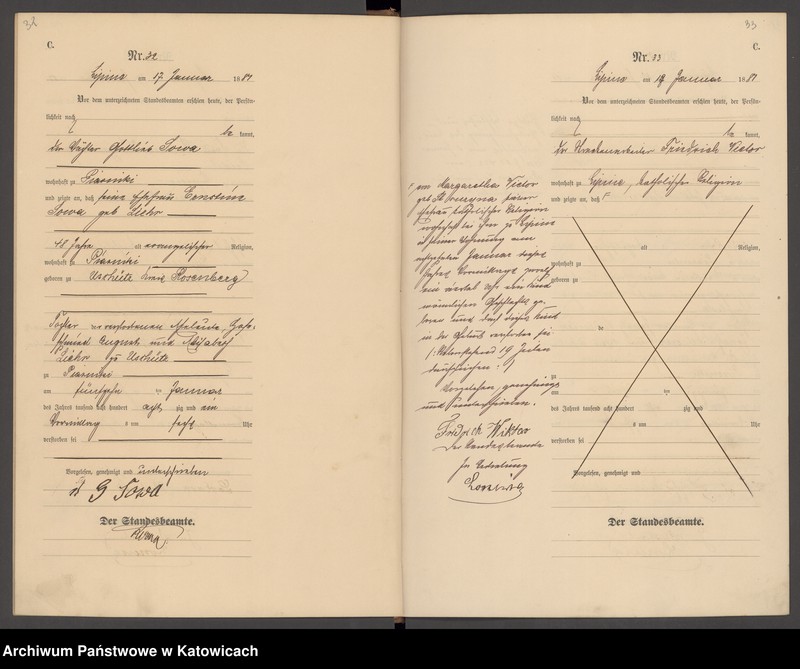 32
C.
Nr. 32
Lipine am 17 Januar 1881
Vor dem unterzeichneten Standesbeamten erschien heute, der Persön-
lichkeit nach
kannt,
der Wächter Gottlieb Sowa
wohnhaft zu Piasniki
und zeigte an, daß seine Ehefrau Ernestine
Sowa geb
48 Jahre alt evangelischer Religion,
wohnhaft zu Piasniki
geboren zu Kreis Rosenberg
Tochter verstorbenen Eheleute
August und
zu
zu Piasniki
am fünfzehn ten Januar
des Jahres tausend acht hundert acht zig und ein
Vormittag s um sechs Uhr
verstorben sei
Vorgelesen, genehmigt und unterschrieben
G Sowa
Der Standesbeamte.
33
C.
Nr. 33
Lipine am 17 Januar 1881
Vor dem unterzeichneten Standesbeamten erschien heute, der Persön-
lichkeit nach
kannt,
der Friedrich Victor
wohnhaft zu Lipine, katholischer Religion
und zeigte an, daß
alt Religion,
wohnhaft zu
geboren zu
de
zu
am ten
des Jahres tausend acht hundert zig und
s um Uhr
verstorben sei
Vorgelesen, genehmigt und
Der Standesbeamte.
Margaretha Victor
geb
Ehefrau katholischer Religion
wohnhaft bei ihm zu Lipine
in seiner Wohnung am
Januar
Jahres Vormittags zwölf
ein viertel Uhr ein Kind
männlichen Geschlechts ge-
boren und daß dieses Kind
in der Geburt verstorben sei
19 Zeilen
durchstrichen.
Vorgelesen, genehmigt
und unterschrieben.
Fridrich Wiktor
Der Standesbeamte
In Vertretung
Archiwum Państwowe w Katowicach